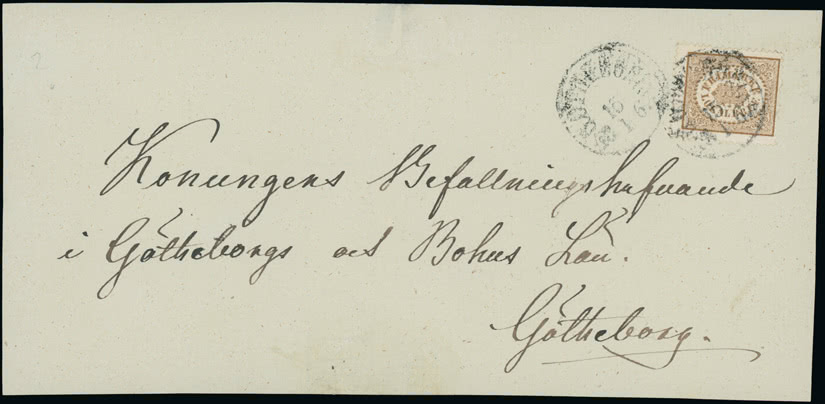 2
GÖTHEBORG
15
1
6
Konungens Befallningshafvande
i Götheborgs och Bohus Län.
Götheborg.